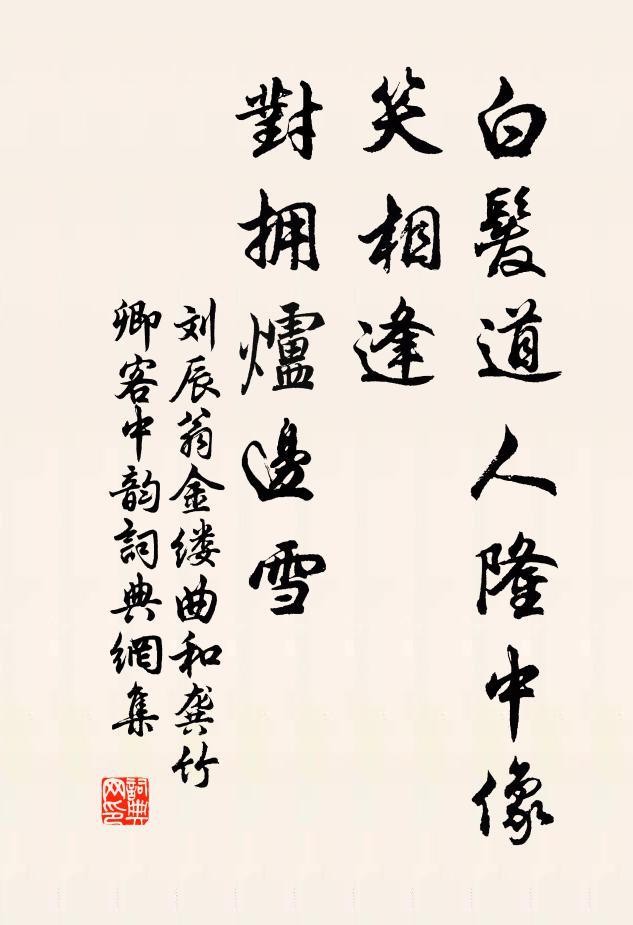 白髮道人隆中像
笑相逢
對拥爐邊雪
刘辰翁金缕曲和龚竹
卿客中韵詞典網集
詞典网印